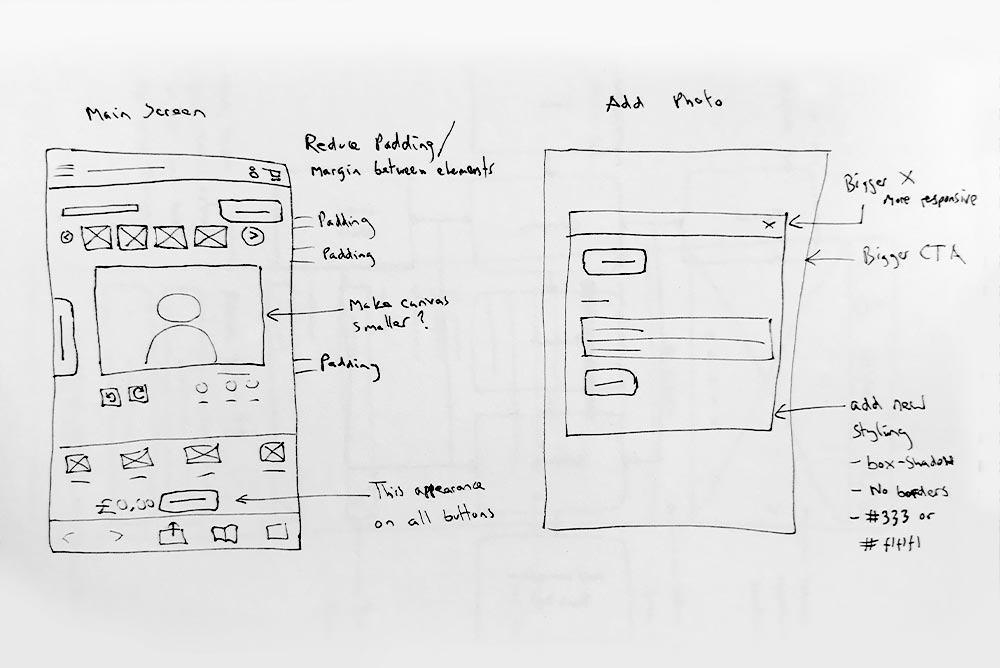 Main Screen
Reduce Padding/
Margin between elements
Padding
Padding
Make canvas
smaller?
Padding
£0.00
This appearance
on all buttons
Add Photo
X
Bigger X
More responsive
Bigger CTA
add new
styling
- box-shadow
- No borders
- #333 or
# f1f1f1